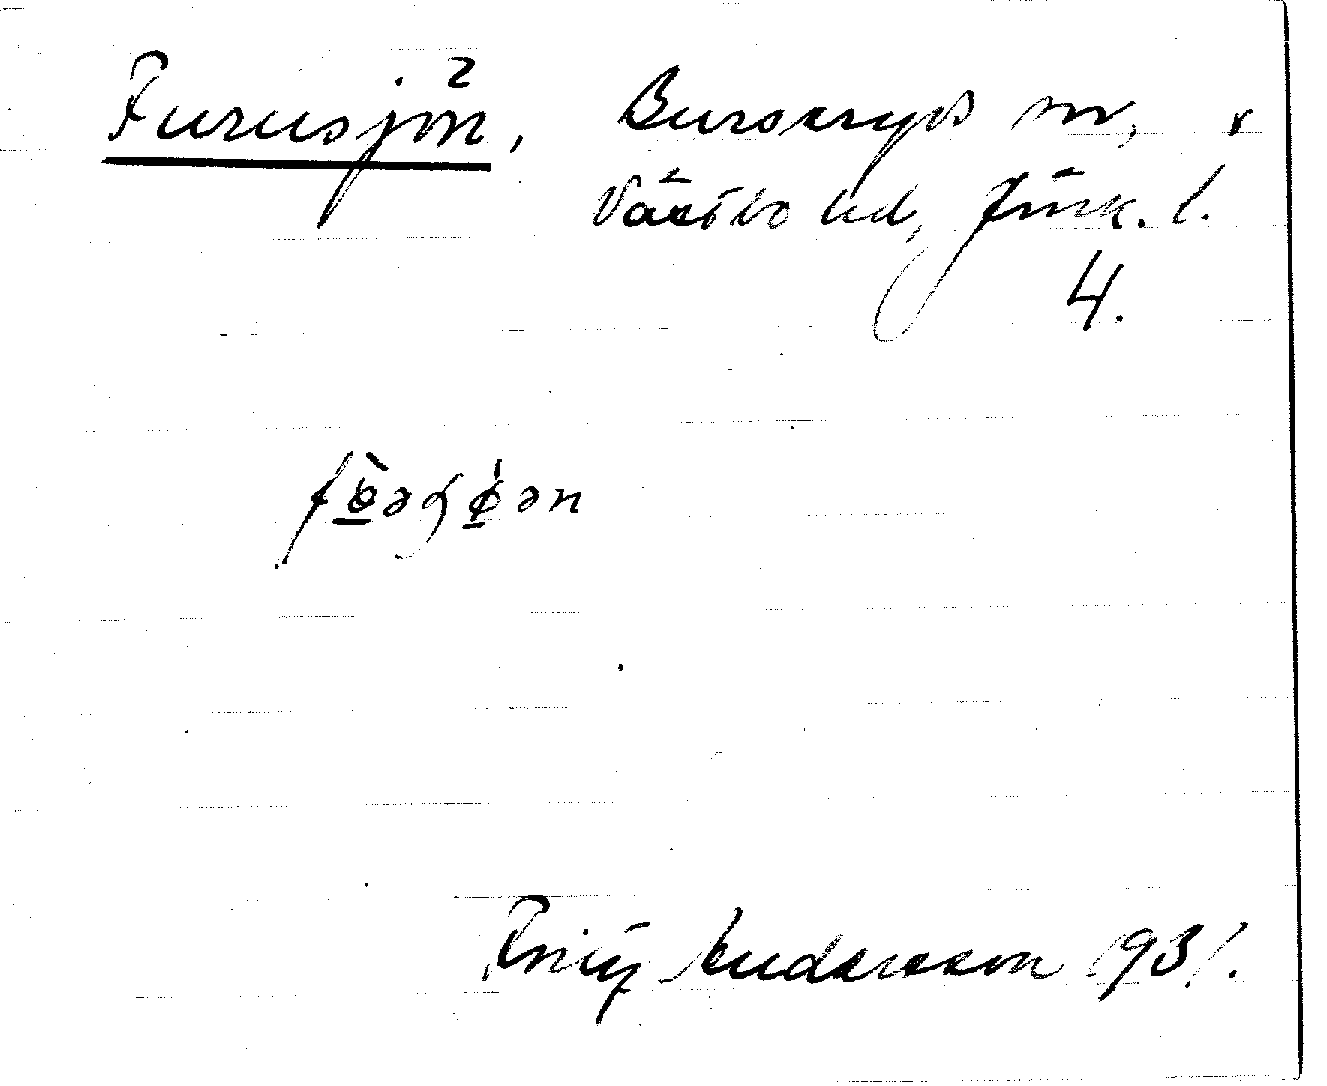 Furusjön, Burseryds sn,
Västbo hd, Jönk. l.
4.
Fritz Andersson 1931.